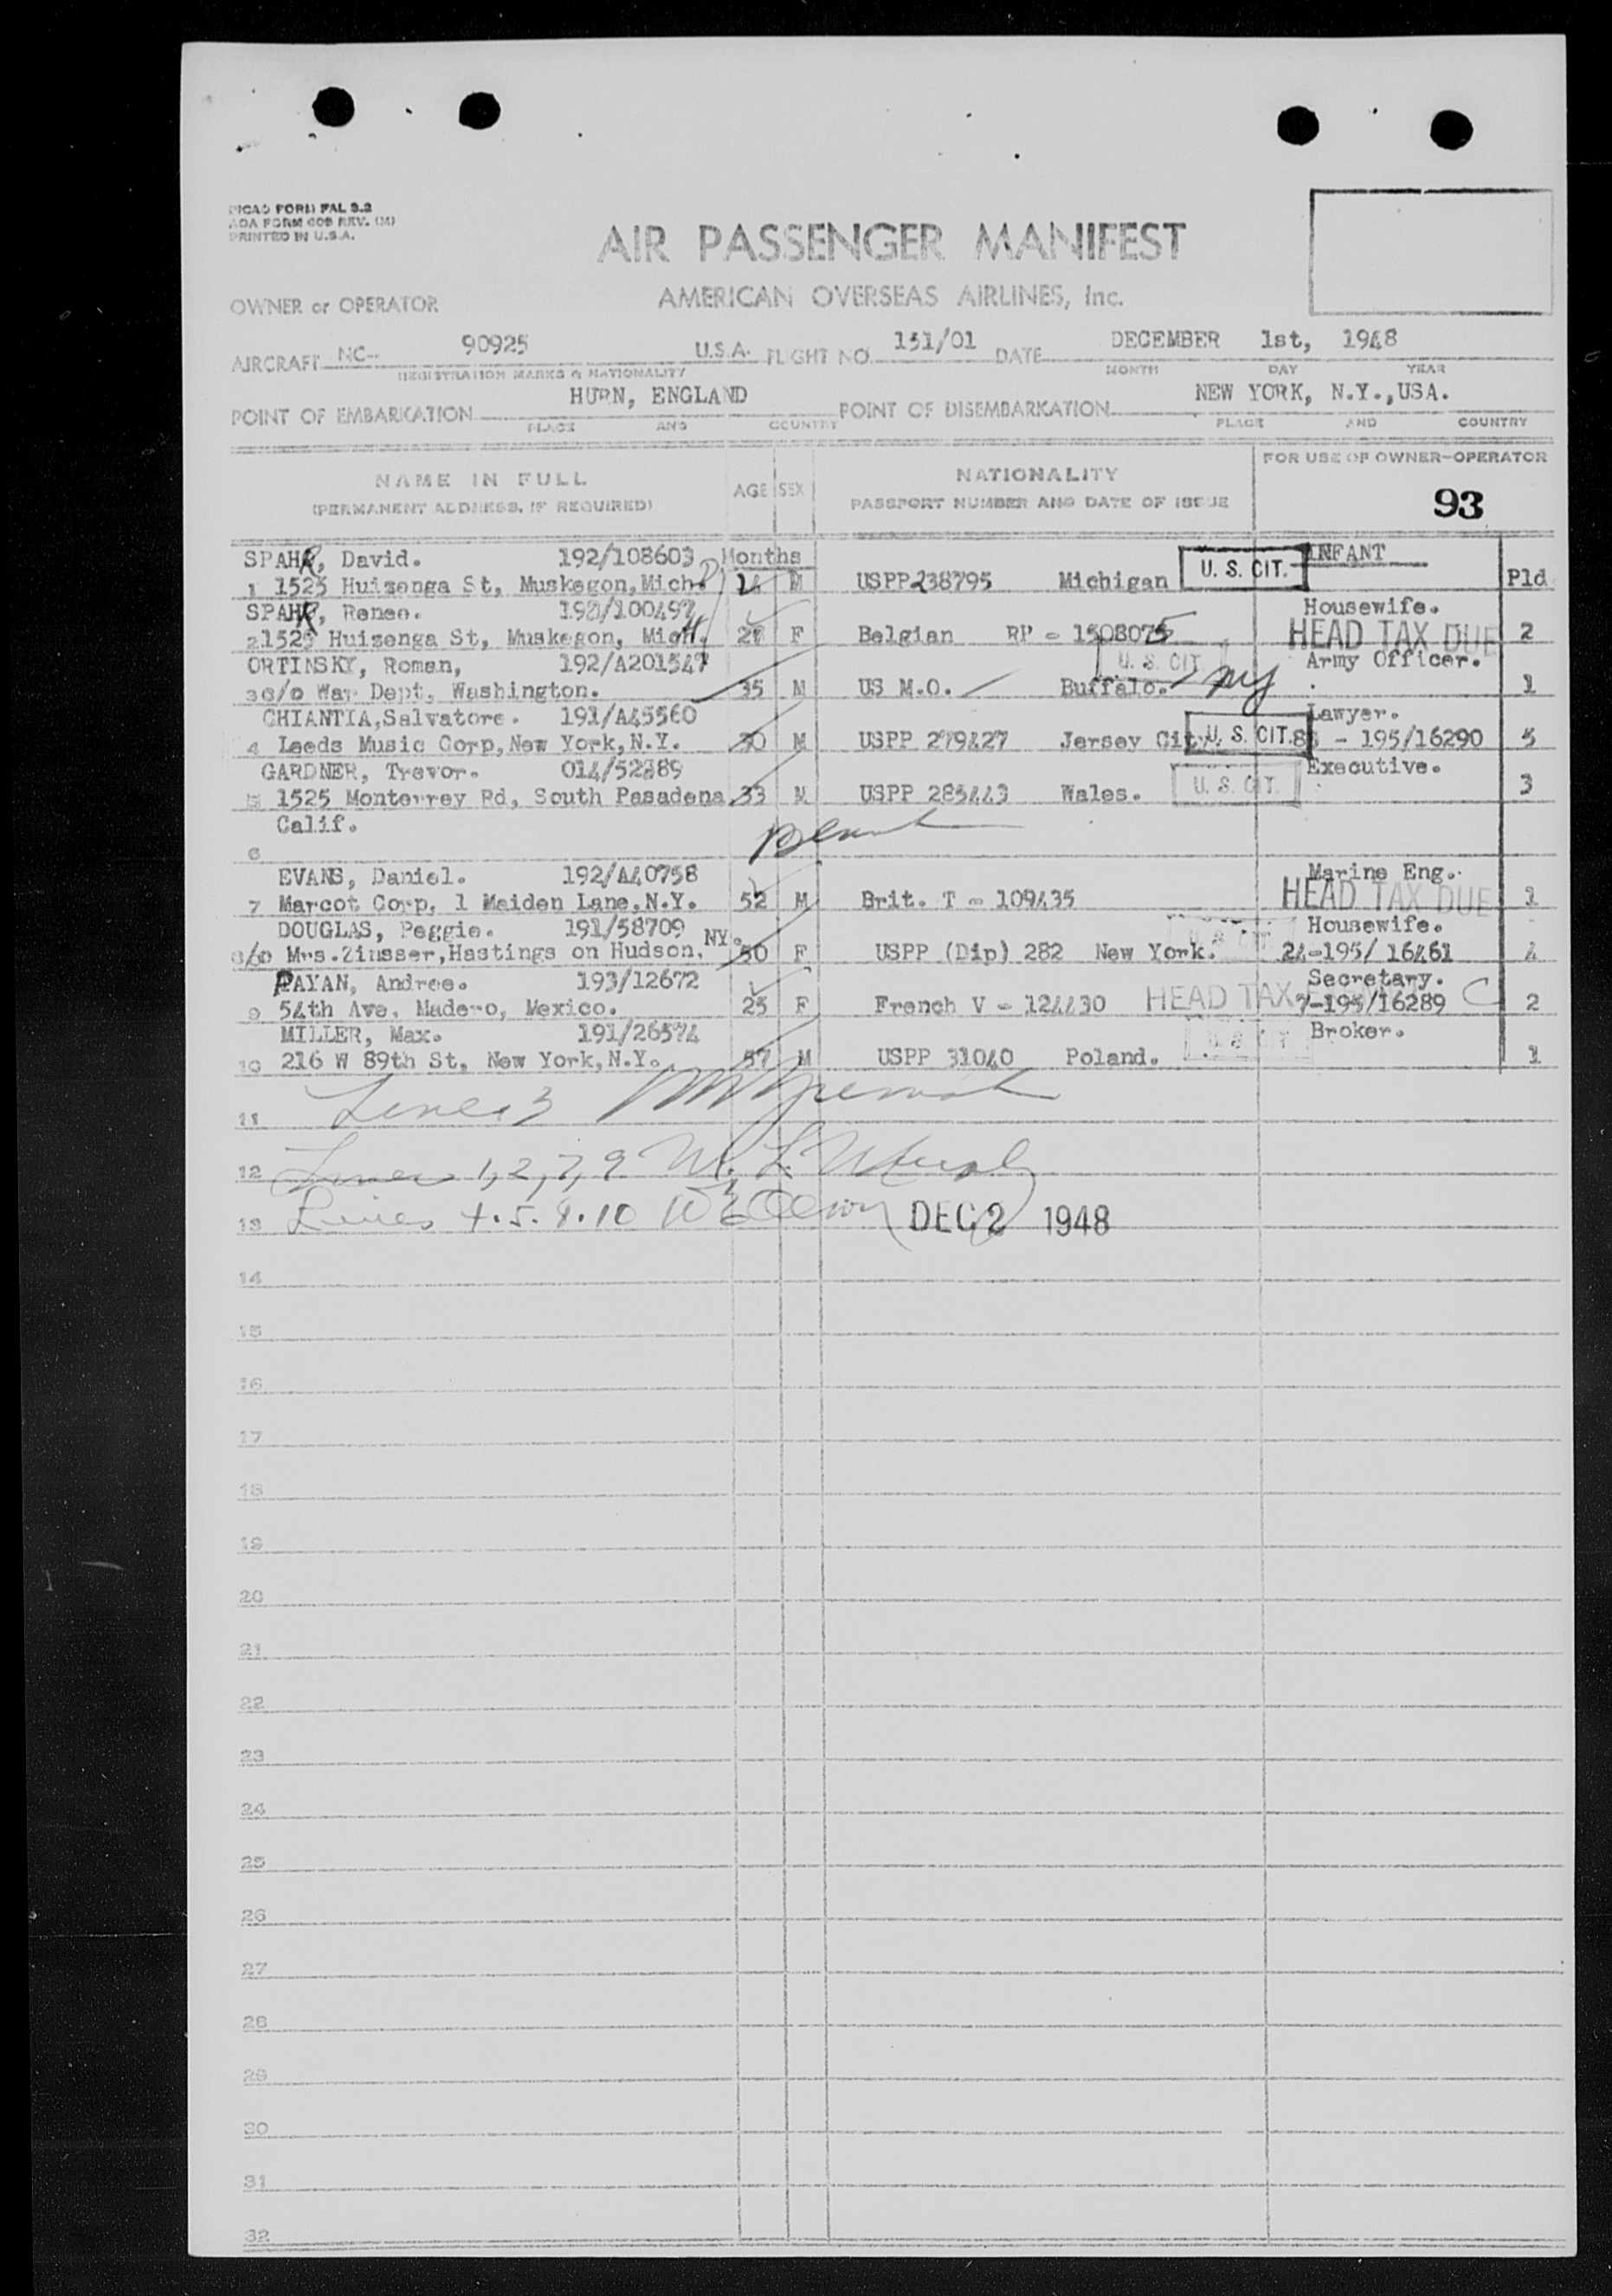 ICAO FORM FAL 3.2
AOA FORM 608 REV. (M)
PRINTED IN U.S.A.
AIR PASSENGER MANIFEST
OWNER or OPERATOR AMERICAN OVERSEAS AIRLINES, Inc.
AIRCRAFT NC- 90925 U.S.A. FLIGHT NO. 131/01 DATE DECEMBER 1st, 1948
REGISTRATION MARKS & NATIONALITY MONTH DAY YEAR
POINT OF EMBARKATION HURN, ENGLAND POINT OF DISEMBARKATION NEW YORK, N.Y.,USA.
PLACE AND COUNTRY PLACE AND COUNTRY
NAME IN FULL
(PERMANENT ADDRESS, IF REQUIRED)
AGE SEX
NATIONALITY
PASSPORT NUMBER AND DATE OF ISSUE
FOR USE OF OWNER-OPERATOR
93
SPAHR, David. 192/108603 Months INFANT
1 1525 Huizenga St, Muskegon, Mich. M USPP 238795 Michigan U. S. CIT. Pld
SPAHR, Renee. Housewife.
2 1525 Huizenga St, Muskegon, Mich. F Belgian RP - 1508075 HEAD TAX DUE 2
ORTINSKY, Roman, 192/A201547 U. S. CIT Army Officer.
3 c/o War Dept, Washington. 35 M US M.O. Buffalo. NY 1
CHIANTIA,Salvatore. 191/A45560 Lawyer.
4 Leeds Music Corp,New York,N.Y. 30 M USPP 279427 Jersey City U. S. CIT. - 195/16290 5
GARDNER, Trevor. 014/52389 Executive.
5 1525 Monterrey Rd, South Pasadena 33 M USPP 283443 Wales. U. S. CIT. 3
Calif.
6
EVANS, Daniel. 192/A40758 Marine Eng.
7 Marcot Corp, 1 Maiden Lane,N.Y. 52 M Brit. T - 109435 HEAD TAX DUE 1
DOUGLAS, Peggie. 191/58709 NY. Housewife.
c/o Mrs.Zinsser,Hastings on Hudson, 50 F USPP (Dip) 282 New York. U S CIT 24-195/ 16461 4
PAYAN, Andree. 193/12672 Secretary.
9 54th Ave, Madero, Mexico. 25 F French V - 124430 HEAD TAX 7-195/16289 C 2
MILLER, Max. 191/26574 Broker.
10 216 W 89th St, New York,N.Y. 57 M USPP 31040 Poland. U S CIT 1
11 Lines 3
12 Lines 1,2,7,9 M. L. Murphy
13 Lines 4.5.8.10 DEC 2 1948
14
15
16
17
18
19
20
21
22
23
24
25
26
27
28
29
30
31
32